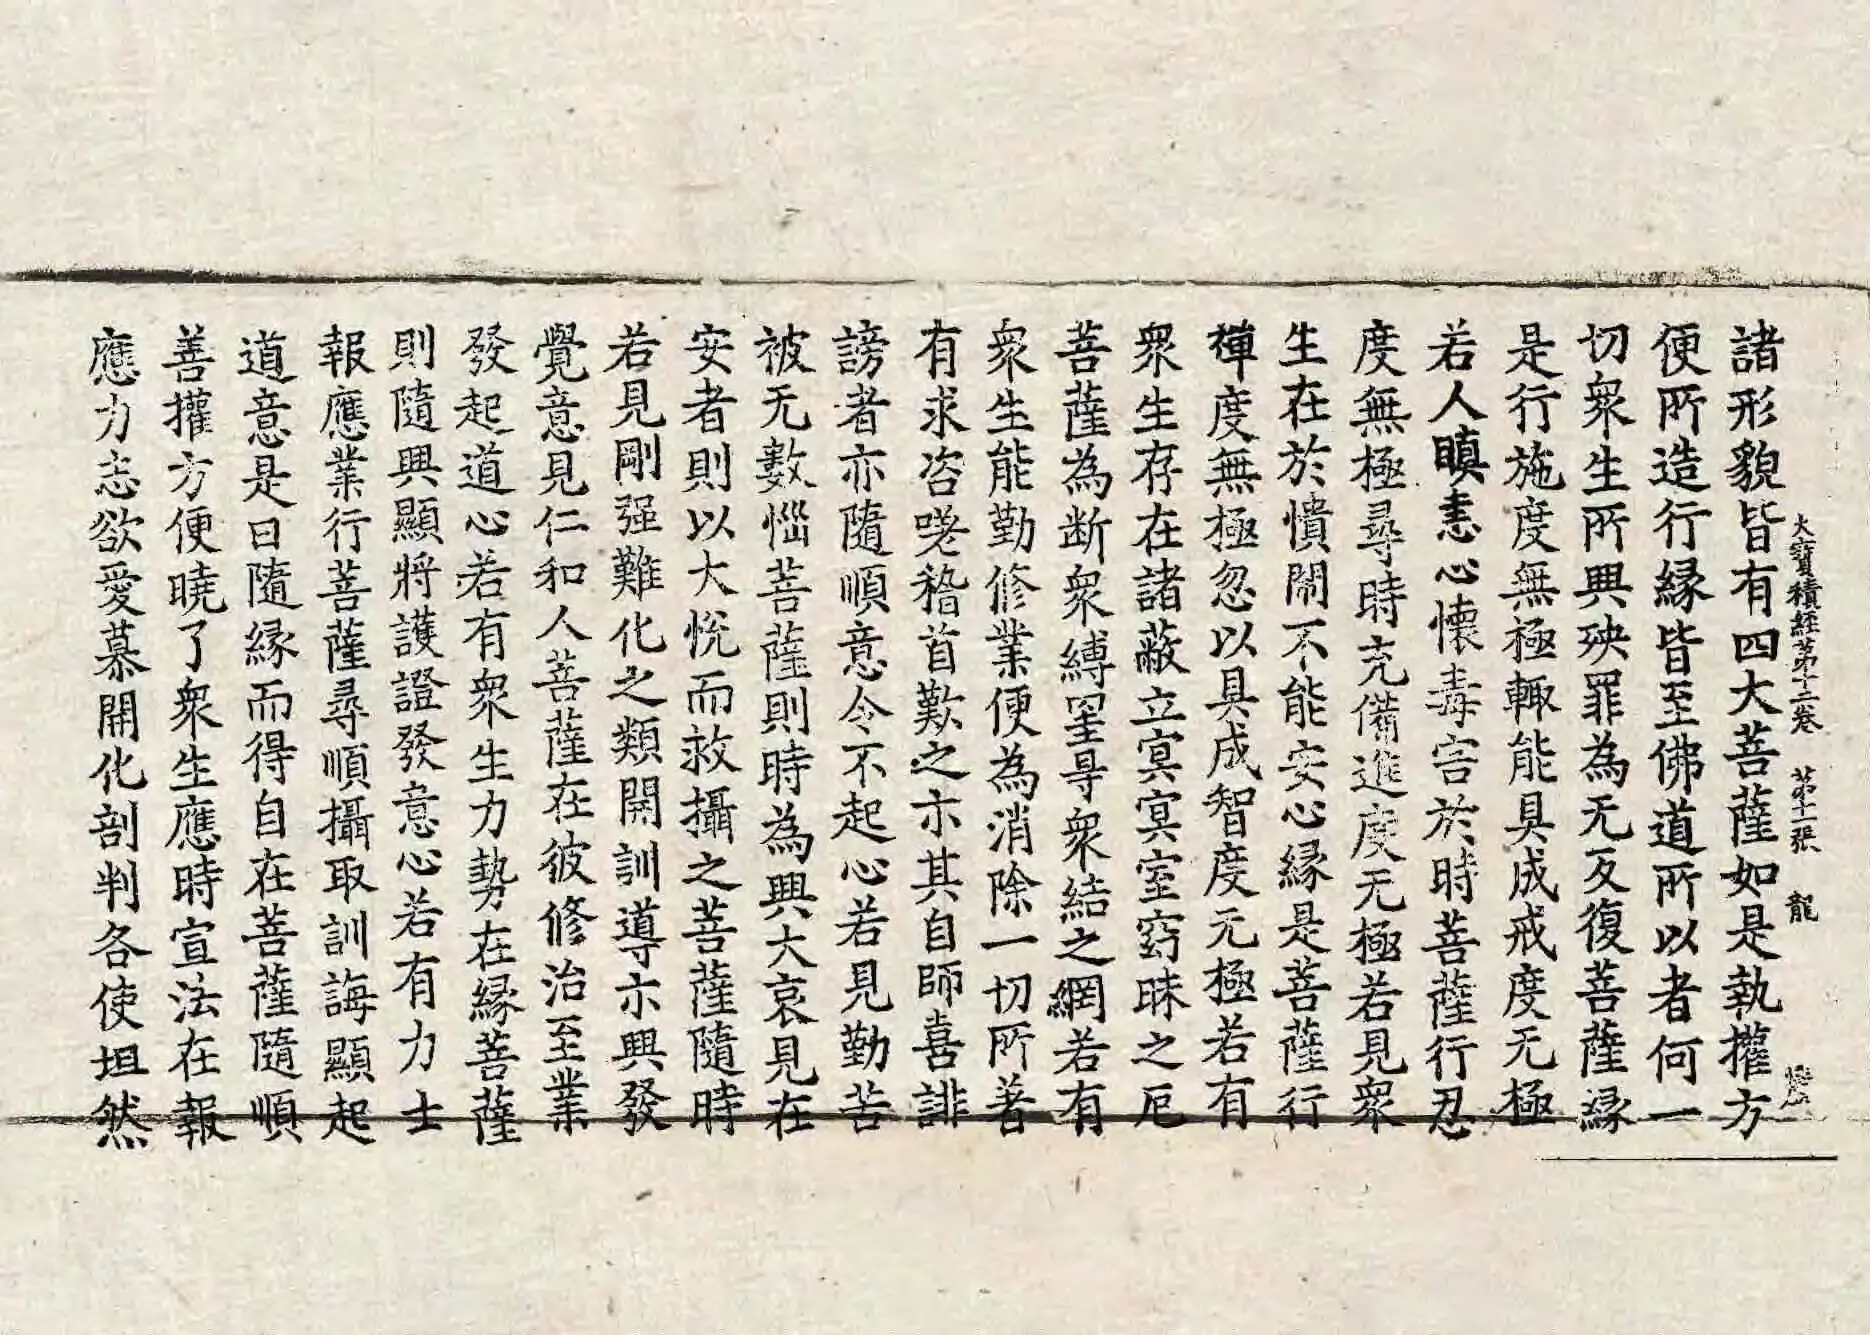 大寶積經第十二卷 第十一張 龍
諸形貌皆有四大菩薩如是執權方
便所造行緣皆至佛道所以者何一
切衆生所興殃罪為无反復菩薩緣
是行施度無極輙能具成戒度无極
若人瞋恚心懷毒害於時菩薩行忍
度無極尋時充備進度无極若見衆
生在於憒閙不能安心緣是菩薩行
禅度無極忽以具成智度无極若有
衆生存在諸蔽立冥冥室窈昧之厄
菩薩為断衆縛罣导衆結之網若有
衆生能勤修業便為消除一切所著
有求咨嗟稽首歎之亦其自師喜誹
謗者亦隨順意令不起心若見勤苦
被无數惱菩薩則時為興大哀見在
安者則以大恱而救攝之菩薩隨時
若見剛强難化之類開訓導亦興發
覺意見仁和人菩薩在彼修治至業
發起道心若有衆生力勢在緣菩薩
則隨興顯將護證發意心若有力士
報應業行菩薩尋順攝取訓誨顯起
道意是曰隨緣而得自在菩薩隨順
善權方便曉了衆生應時宣法在報
應力志欲愛慕開化剖判各使坦然